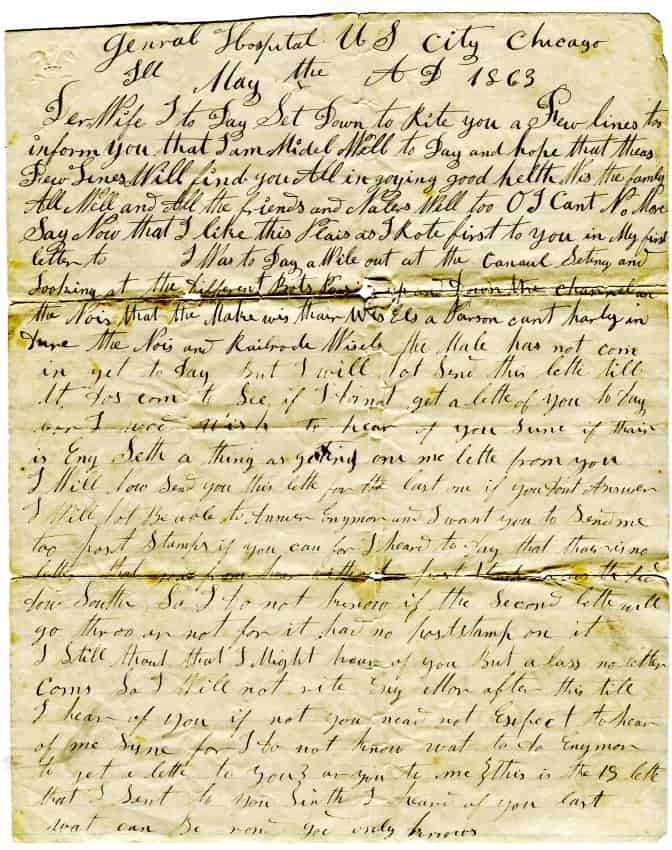 Genral Hospital U S City Chicago
Ill May the A D 1863
Der Wife I to Day Set Down to Rite you a Few lines to
inform you that I am Midel Well to Day and hope that theas
Few Lines Will find you All in goying good helth Wis the family
All Well and All the friends and Naters Well too O I Cant No More
Say Now that I like this Plais as I Rote first to you in My first
letter to I Was to Day a Wile out at the Canaul Seting and
Looking at the Different Bots up and Down the Channel an
the Nois that the Make wis thair Wisels a Parson cant harly in
Dure the Nois and Railrode Wisels the Male has not com
in yet to Day But I will not Send this lette till
it Dos com to See if I Do not get a lette of you to Day
I wod Wish to hear of you Sune if thair
is Eny Setch a thing as geting one me lette from you
I Will now Send you this lette for the last one if you Dont Answer
I Will not Be able to Answer Enymor and I want you to Send me
too post Stamps if you can for I heard to Day that thair is no
lette that
Dow South So I Do not know if the Second lette will
go throo or not for it had no poststamp on it
I Still thout that I Might heare of you But a lass no letter
Coms So I Will not rite Eny Mor after this till
I hear of you if not you nead not Expect to hear
of me Sune for I Do not know wat to Do Enymor
to get a lette to you or you to me this is the 19 lette
that I Sent to you Sinth I heard of you last
wat can Be rong God only knows